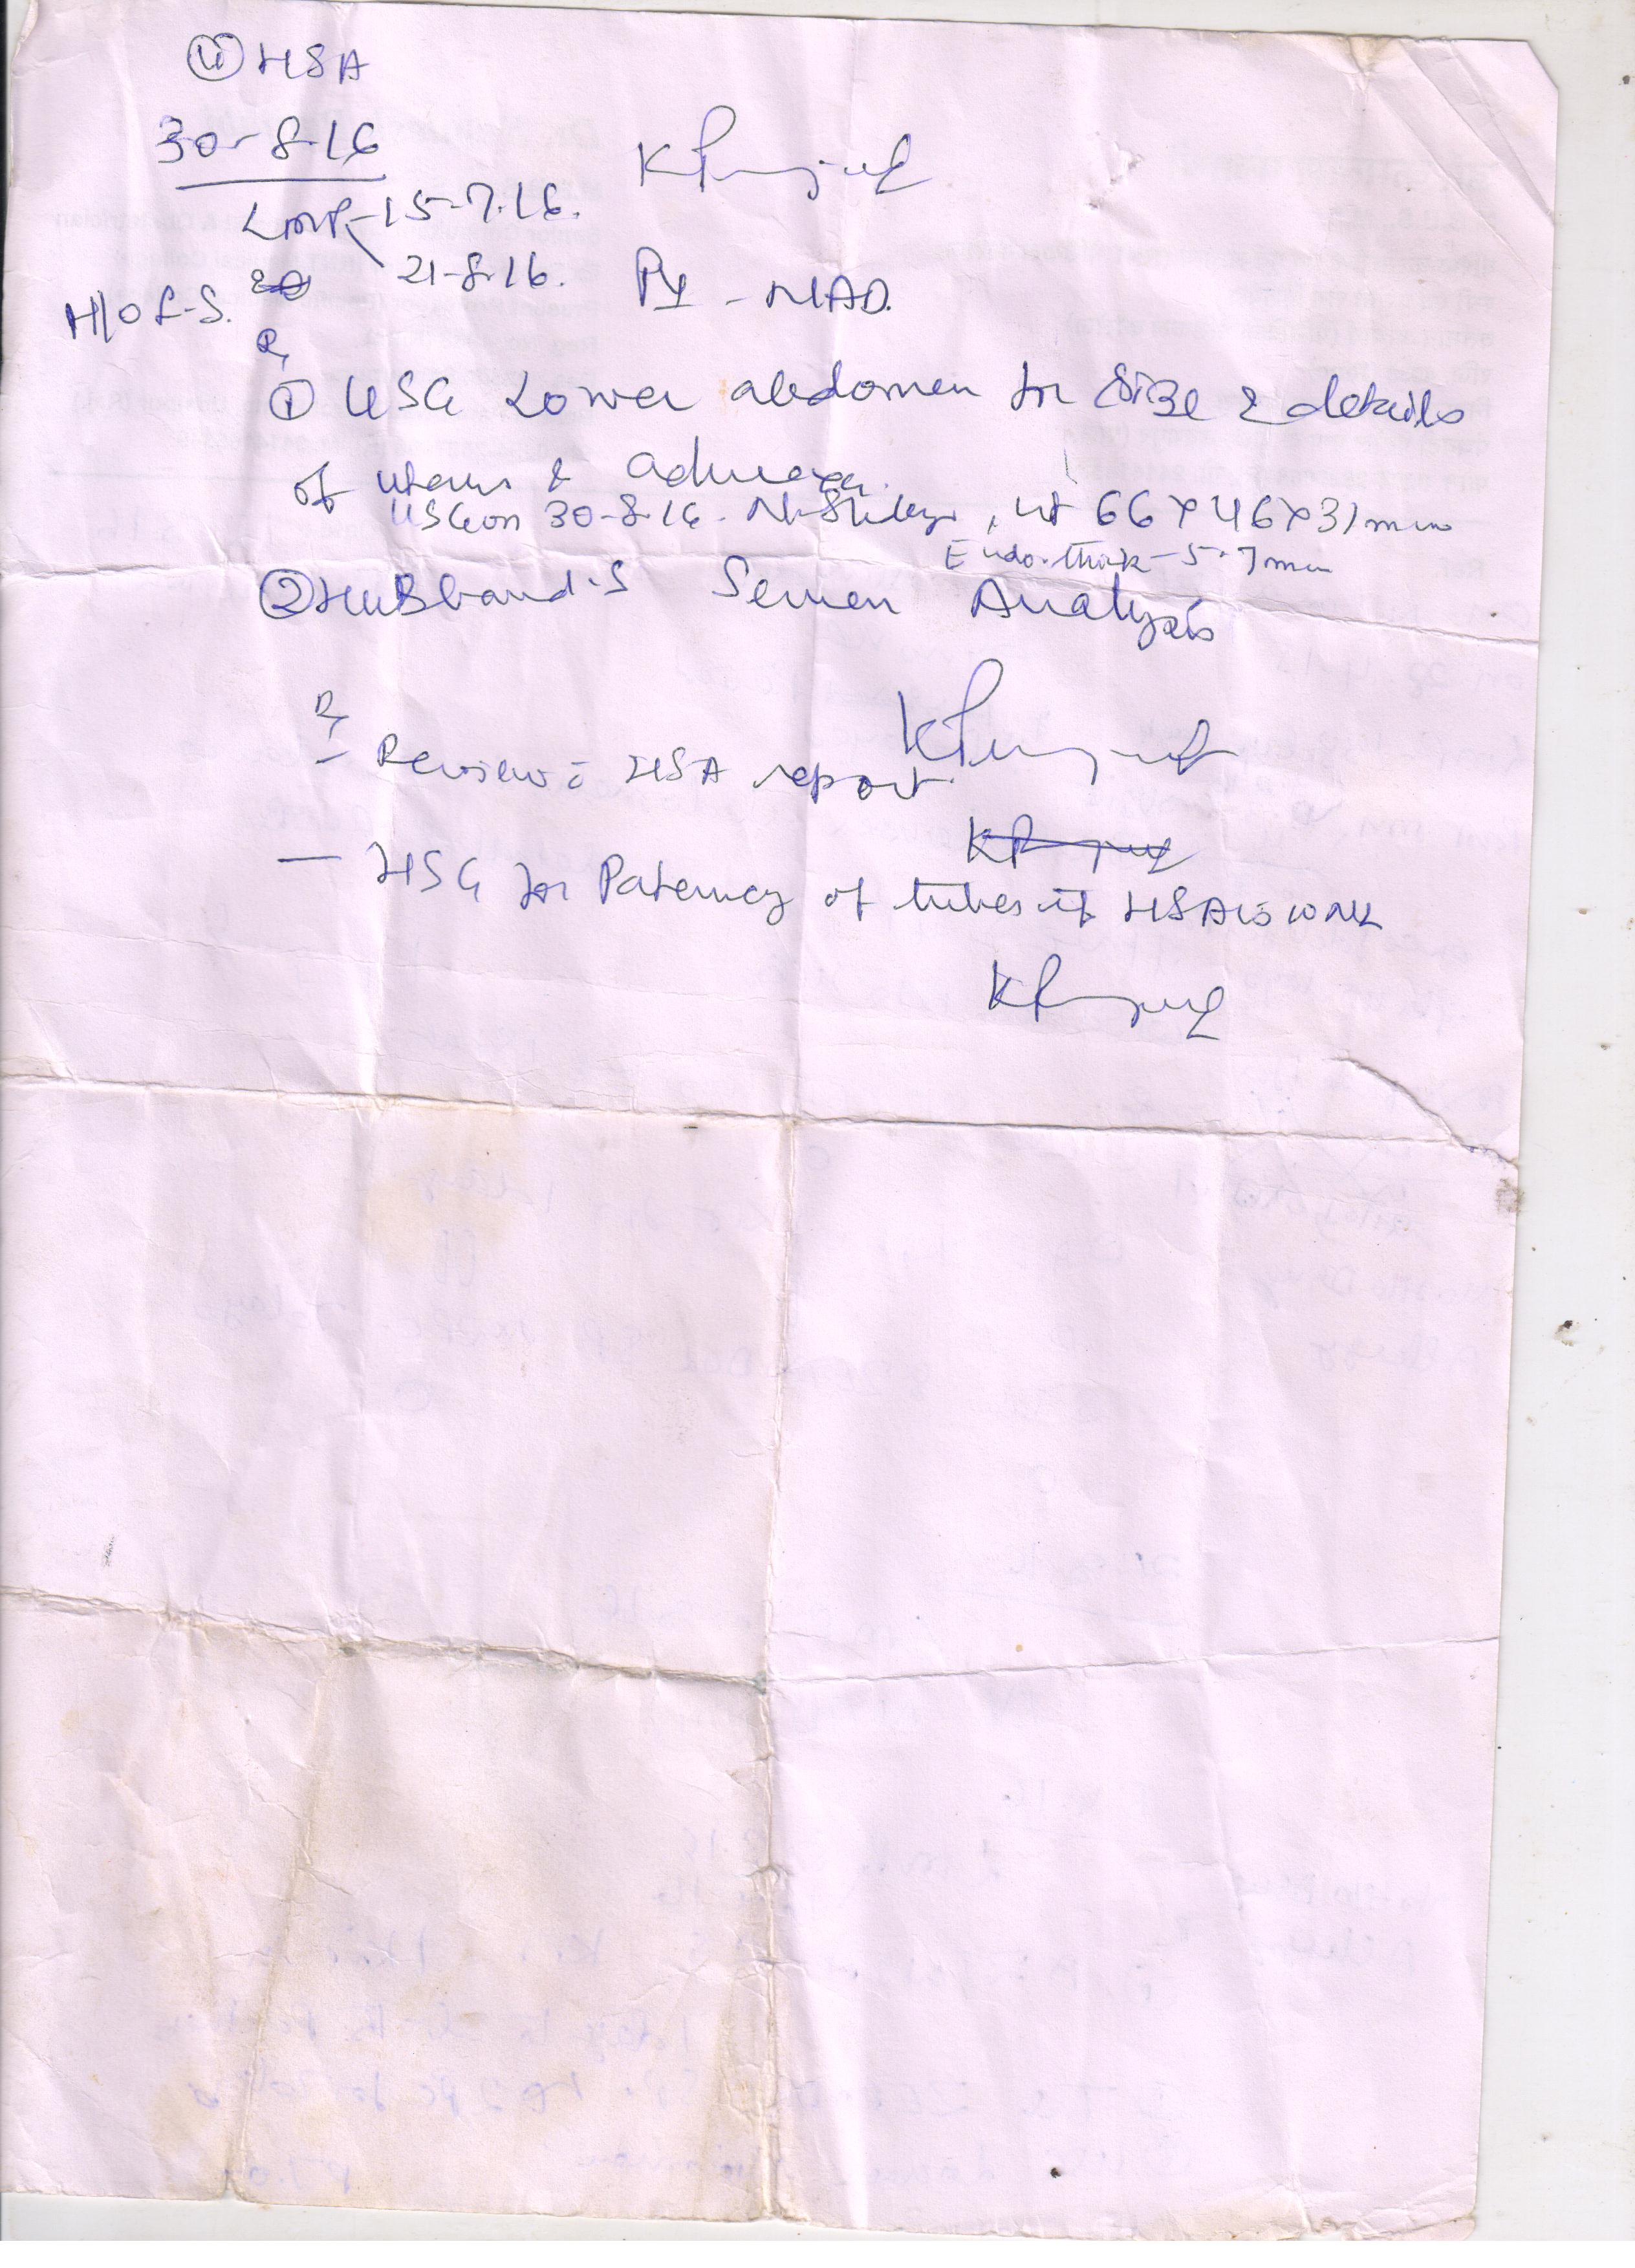 ④ HSA
30-8-16
LMP-15-7-16.
21-8-16. PV - NAD.
H/O L.S.
Rx
① USG Lower abdomen for Size & details
of uterus & adnexa.
USG on 30-8-16. , ut 66x46x31mm
Endo. thick - 5.7mm
② HusBband's Semen Analysis
Rx
- Review c̄ HSA report
- HSG for Patency of tubes if HSA is WNL